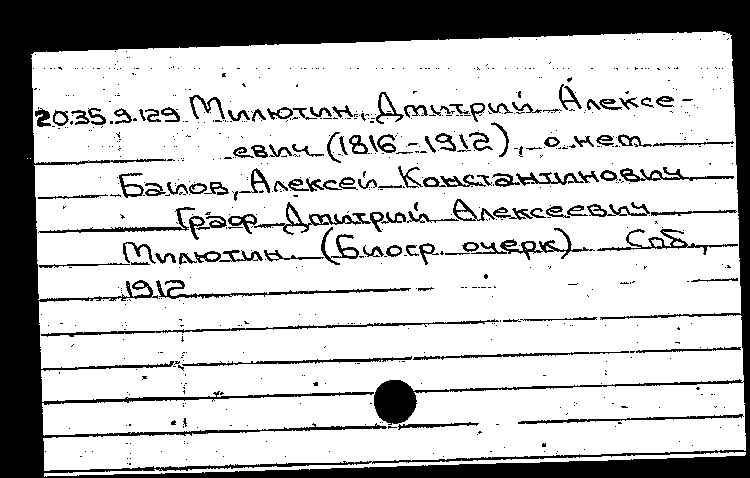 2035.9.129 Милютин, Дмитрий Алексе-
евич (1816-1912), о нем
Баиов, Алексей Константинович
Граф Дмитрий Алексеевич
Милютин. (Биогр. очерк). Спб.,
1912